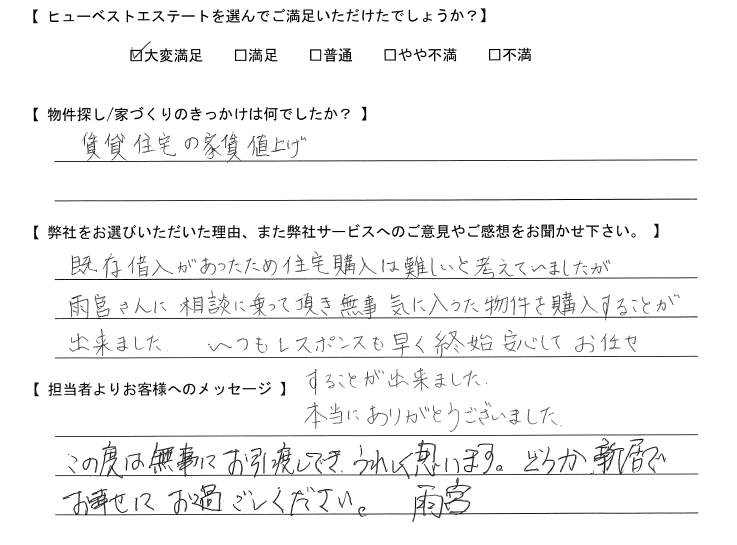 【 ヒューベストエステートを選んでご満足いただけたでしょうか？】
☑大変満足 □満足 □普通 □やや不満 □不満
【 物件探し/家づくりのきっかけは何でしたか？ 】
賃貸住宅の家賃値上げ
【 弊社をお選びいただいた理由、また弊社サービスへのご意見やご感想をお聞かせ下さい。 】
既存借入があったため住宅購入は難しいと考えていましたが
雨宮さんに相談に乗って頂き無事気に入った物件を購入することが
出来ました。 いつもレスポンスも早く終始安心してお任せ
することが出来ました。
本当にありがとうございました。
【 担当者よりお客様へのメッセージ 】
この度は無事にお引渡しでき、うれしく思います。どうか、新居で
お幸せにお過ごしください。 雨宮